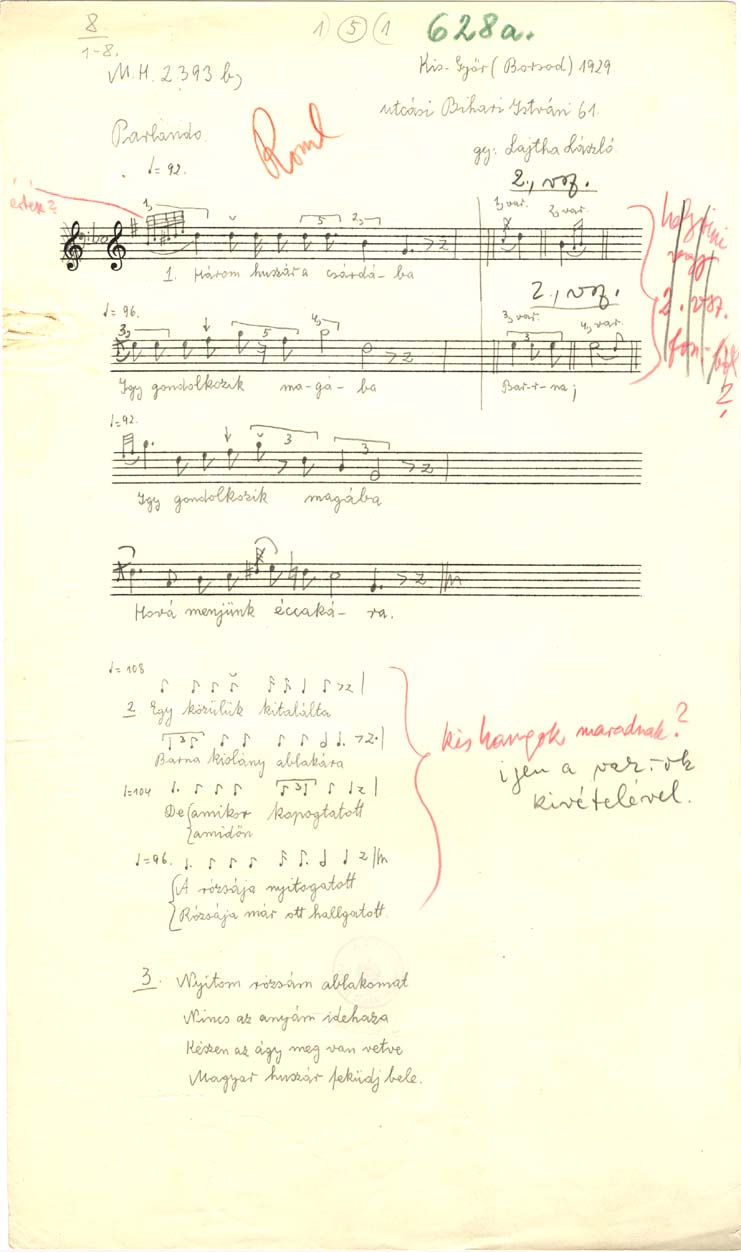 8
1-8.
1) (5) (1
628a.
M.H. 2393 b,
Kis-Győr (Borsod) 1929
utcási Bihari István 61.
gy: Lajtha László
Parlando.
♩= 92.
2., vsz.
1, 5 2,
1, var. 2, var.
1. Három huszár a csárdá-ba
♩= 96.
2., vsz.
3, 5 4,
3, var. 4, var.
3
Igy gondolkozik ma-gá-ba
Bar-r-na;
♩=92.
3 3
Igy gondolkozik magába
Hová menjünk éccaká-ra.
♩= 108
2 Egy közülük kitalálta
3
Barna kislány ablakára
♩=104
3
De amikor kopogtatott
amidőn
♩=96.
A rózsája nyitogatott
Rózsája már ott hallgatott.
kis hangok maradnak?
kivételével.
3. Nyitom rózsám ablakomat
Nincs az anyám idehaza
Készen az ágy meg van vetve
Magyar huszár feküdj bele.